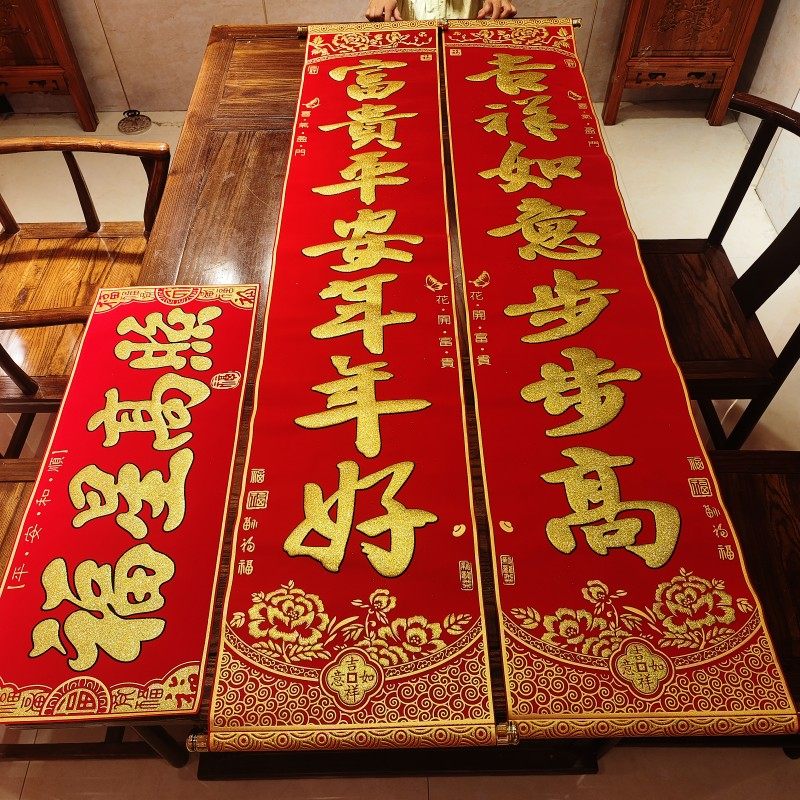 吉祥如意步步高
喜·氣·盈·門
花·開·富·貴
吉祥如意
富貴平安年年好
喜·氣·盈·門
花·開·富·貴
吉祥如意
福星高照
【平·安·和·順】